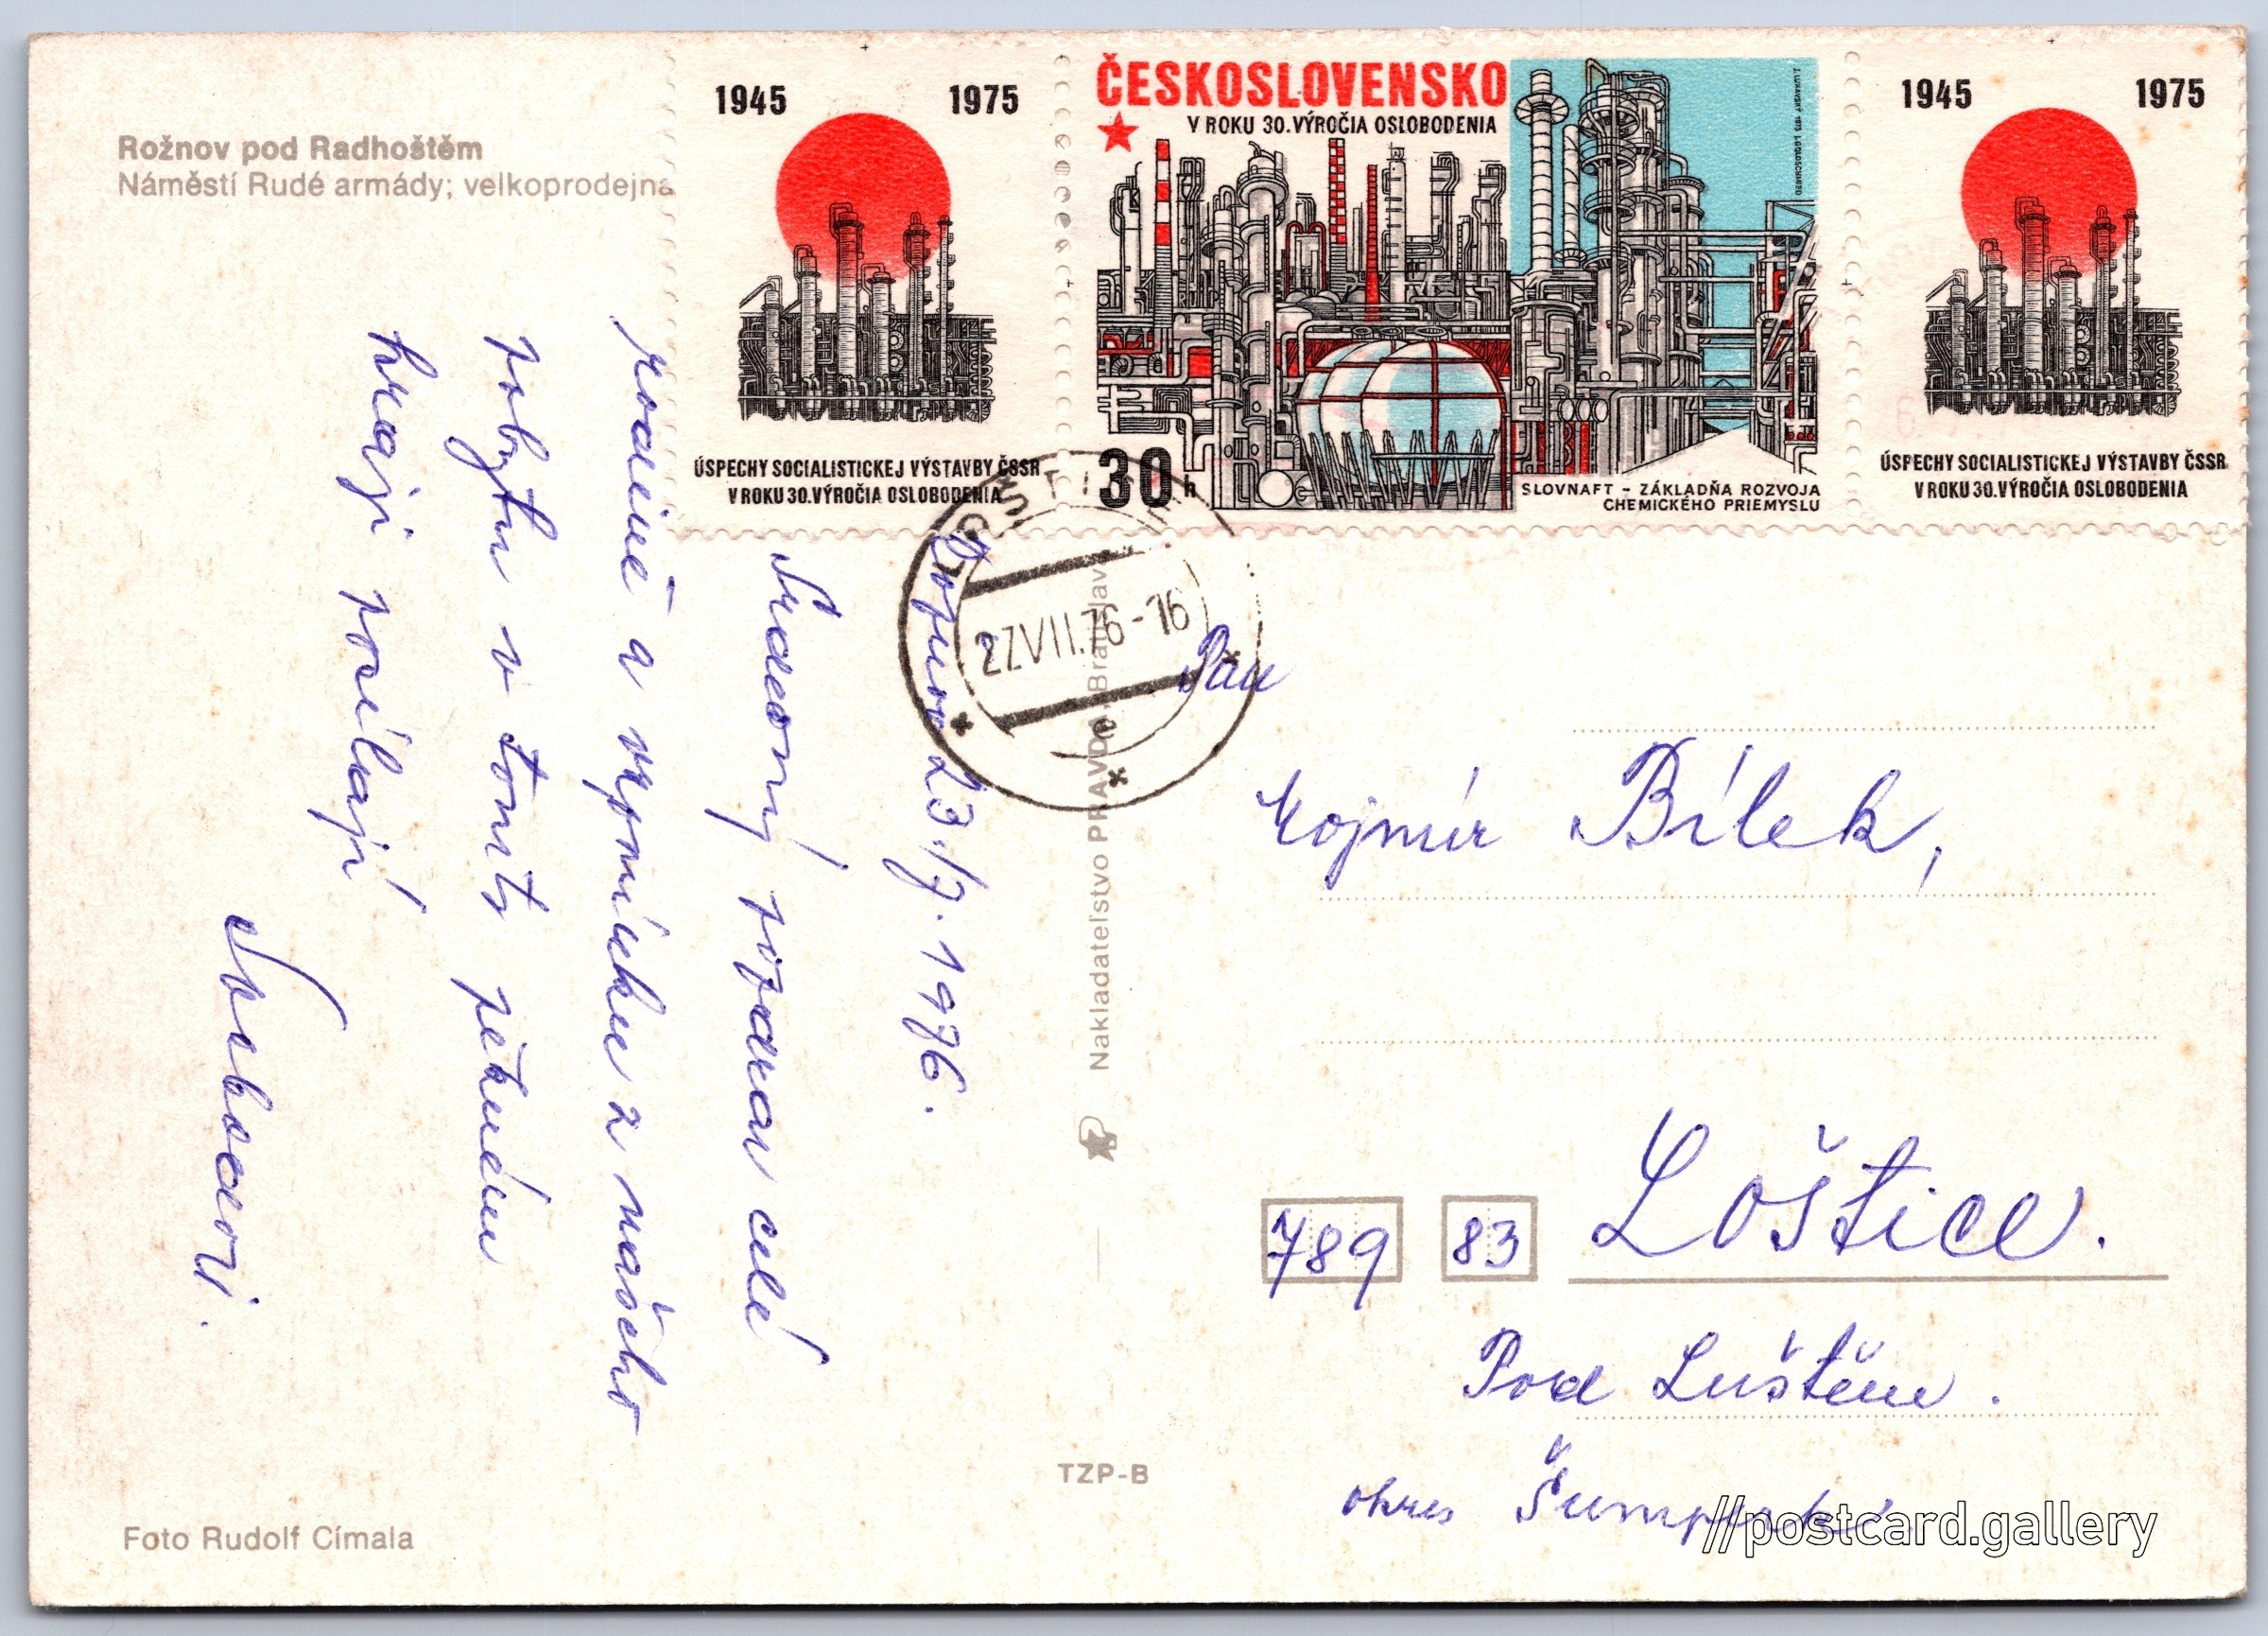 Rožnov pod Radhoštěm
Náměstí Rudé armády; velkoprodejna
1945 1975
ÚSPECHY SOCIALISTICKEJ VÝSTAVBY ČSSR
V ROKU 30.VÝROČIA OSLOBODENIA
ČESKOSLOVENSKO
V ROKU 30.VÝROČIA OSLOBODENIA
30 h
SLOVNAFT - ZÁKLADŇA ROZVOJA
CHEMICKÉHO PRIEMYSLU
1945 1975
ÚSPECHY SOCIALISTICKEJ VÝSTAVBY ČSSR
V ROKU 30.VÝROČIA OSLOBODENIA
27.VII.76-16
23./7. 1976.
Srdečný pozdrav celé
rodině a vzpomínku z našeho
pobytu v tomto pěkném
kraji posílají
Nakladateľstvo PRAVDA, Bratislava
TZP-B
Foto Rudolf Címala
Pan
Mojmír Bílek,
789 83 Loštice.
Pod
okres Šumperk
//postcard.gallery